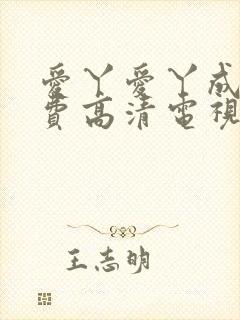 愛丫愛丫成
費高清電視
王志明